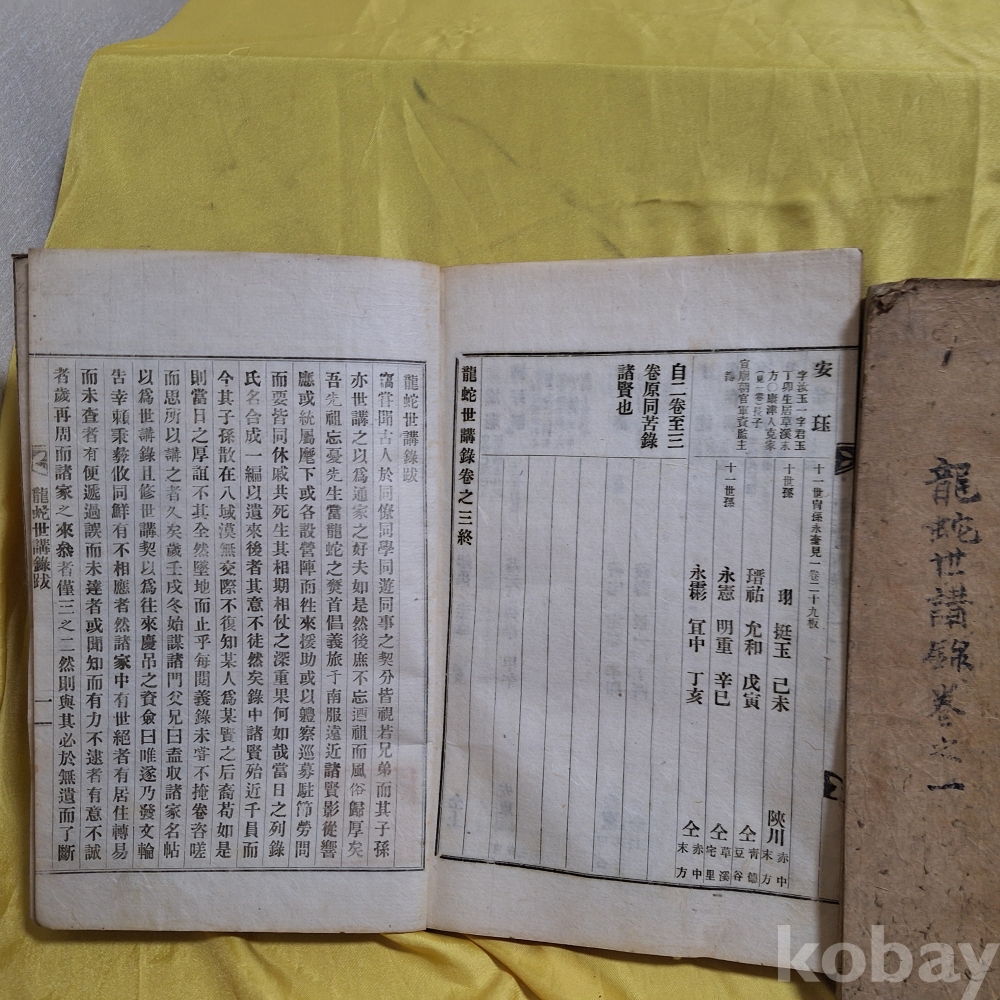 安珏
字汝玉一字君玉
丁卯生居草溪末
方〇康津人克家
(見一卷)長子
宣廟朝官軍資監主
簿
十一世胄孫永奎見一卷二十九板
十世孫
珝 挺玉 己未 陜川 赤中末方
瑨祐 允和 戊寅 仝 靑德豆谷
十一世孫
永憲 明重 辛巳 仝 草溪宅里
永鬱 冝中 丁亥 仝 赤中末方
自二卷至三
卷原同苦錄
諸賢也
龍蛇世講錄卷之三終
龍蛇世講錄跋
竊嘗聞古人於同僚同學同遊同事之契分皆視若兄弟而其子孫
亦世講之以爲通家之好夫如是然後庶不忘迺祖而風俗歸厚矣
吾先祖忘憂先生當龍蛇之爕首倡義旅于南服遠近諸賢影從響
應或統屬麾下或各設營陣而徃來援助或以體察巡募駐節勞問
而要皆同休戚共死生其相期相仗之深重果何如哉當日之列錄
氏名合成一編以遺來後者其意不徒然矣錄中諸賢殆近千員而
今其子孫散在八域漠無交際不復知某人爲某賢之后裔苟如是
則當日之厚誼不其全然墜地而止乎每閱義錄未嘗不掩卷咨嗟
而思所以講之者久矣歲壬戌冬始謀諸門父兄曰盍取諸家名帖
以爲世講錄且修世講契以爲往來慶吊之資僉曰唯遂乃發文輪
告幸賴秉彜攸同鮮有不相應者然諸家中有世絕者有居住轉易
而未查者有便遞過誤而未達者或聞知而有力不逮者有意不誠
者歲再周而諸家之來叅者僅三之二然則與其必於無遺而了斷
龍蛇世講錄跋
一
龍蛇世講錄卷之一
kobay